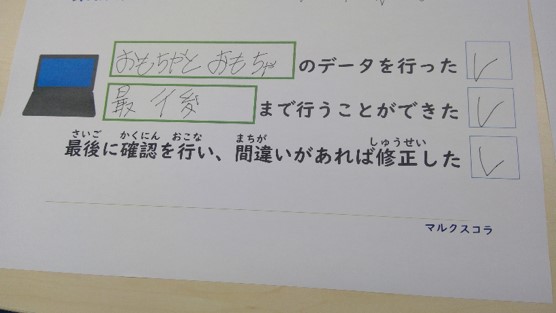 おもちゃと おもちゃ のデータを行った
最後 まで行うことができた
最後に確認を行い、間違いがあれば修正した
さいご かくにん おこな まちが しゅうせい
マルクスコラ